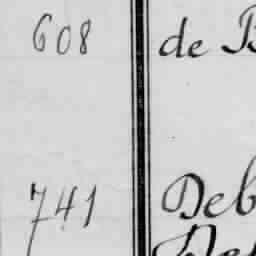 608 de B
741 Deb